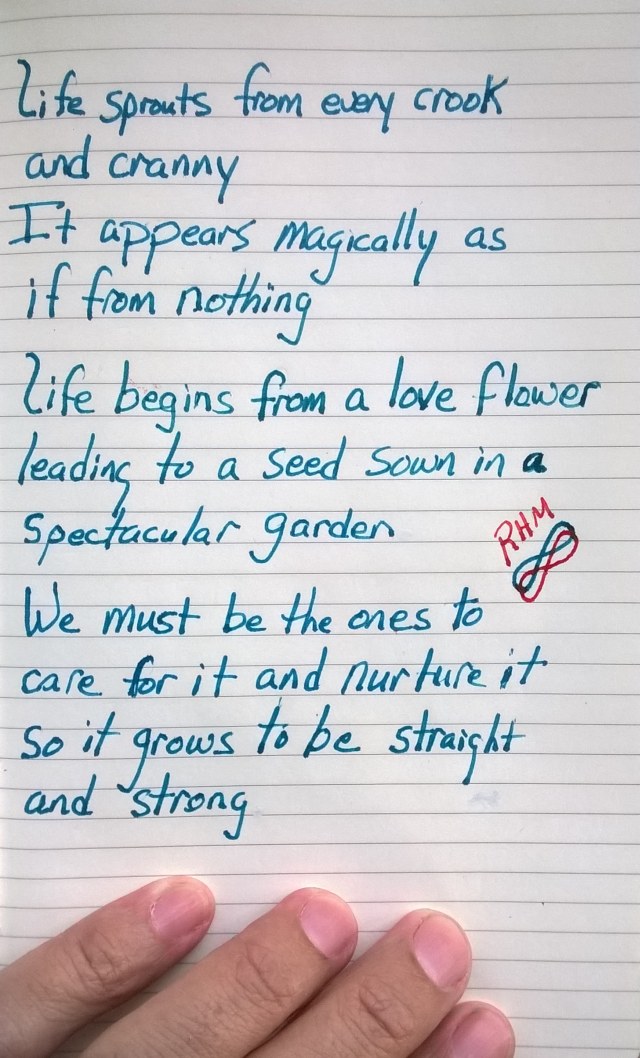 Life sprouts from every crook
and cranny
It appears magically as
if from nothing
Life begins from a love flower
leading to a seed sown in a
spectacular garden
RHM
We must be the ones to
care for it and nurture it
So it grows to be straight
and strong